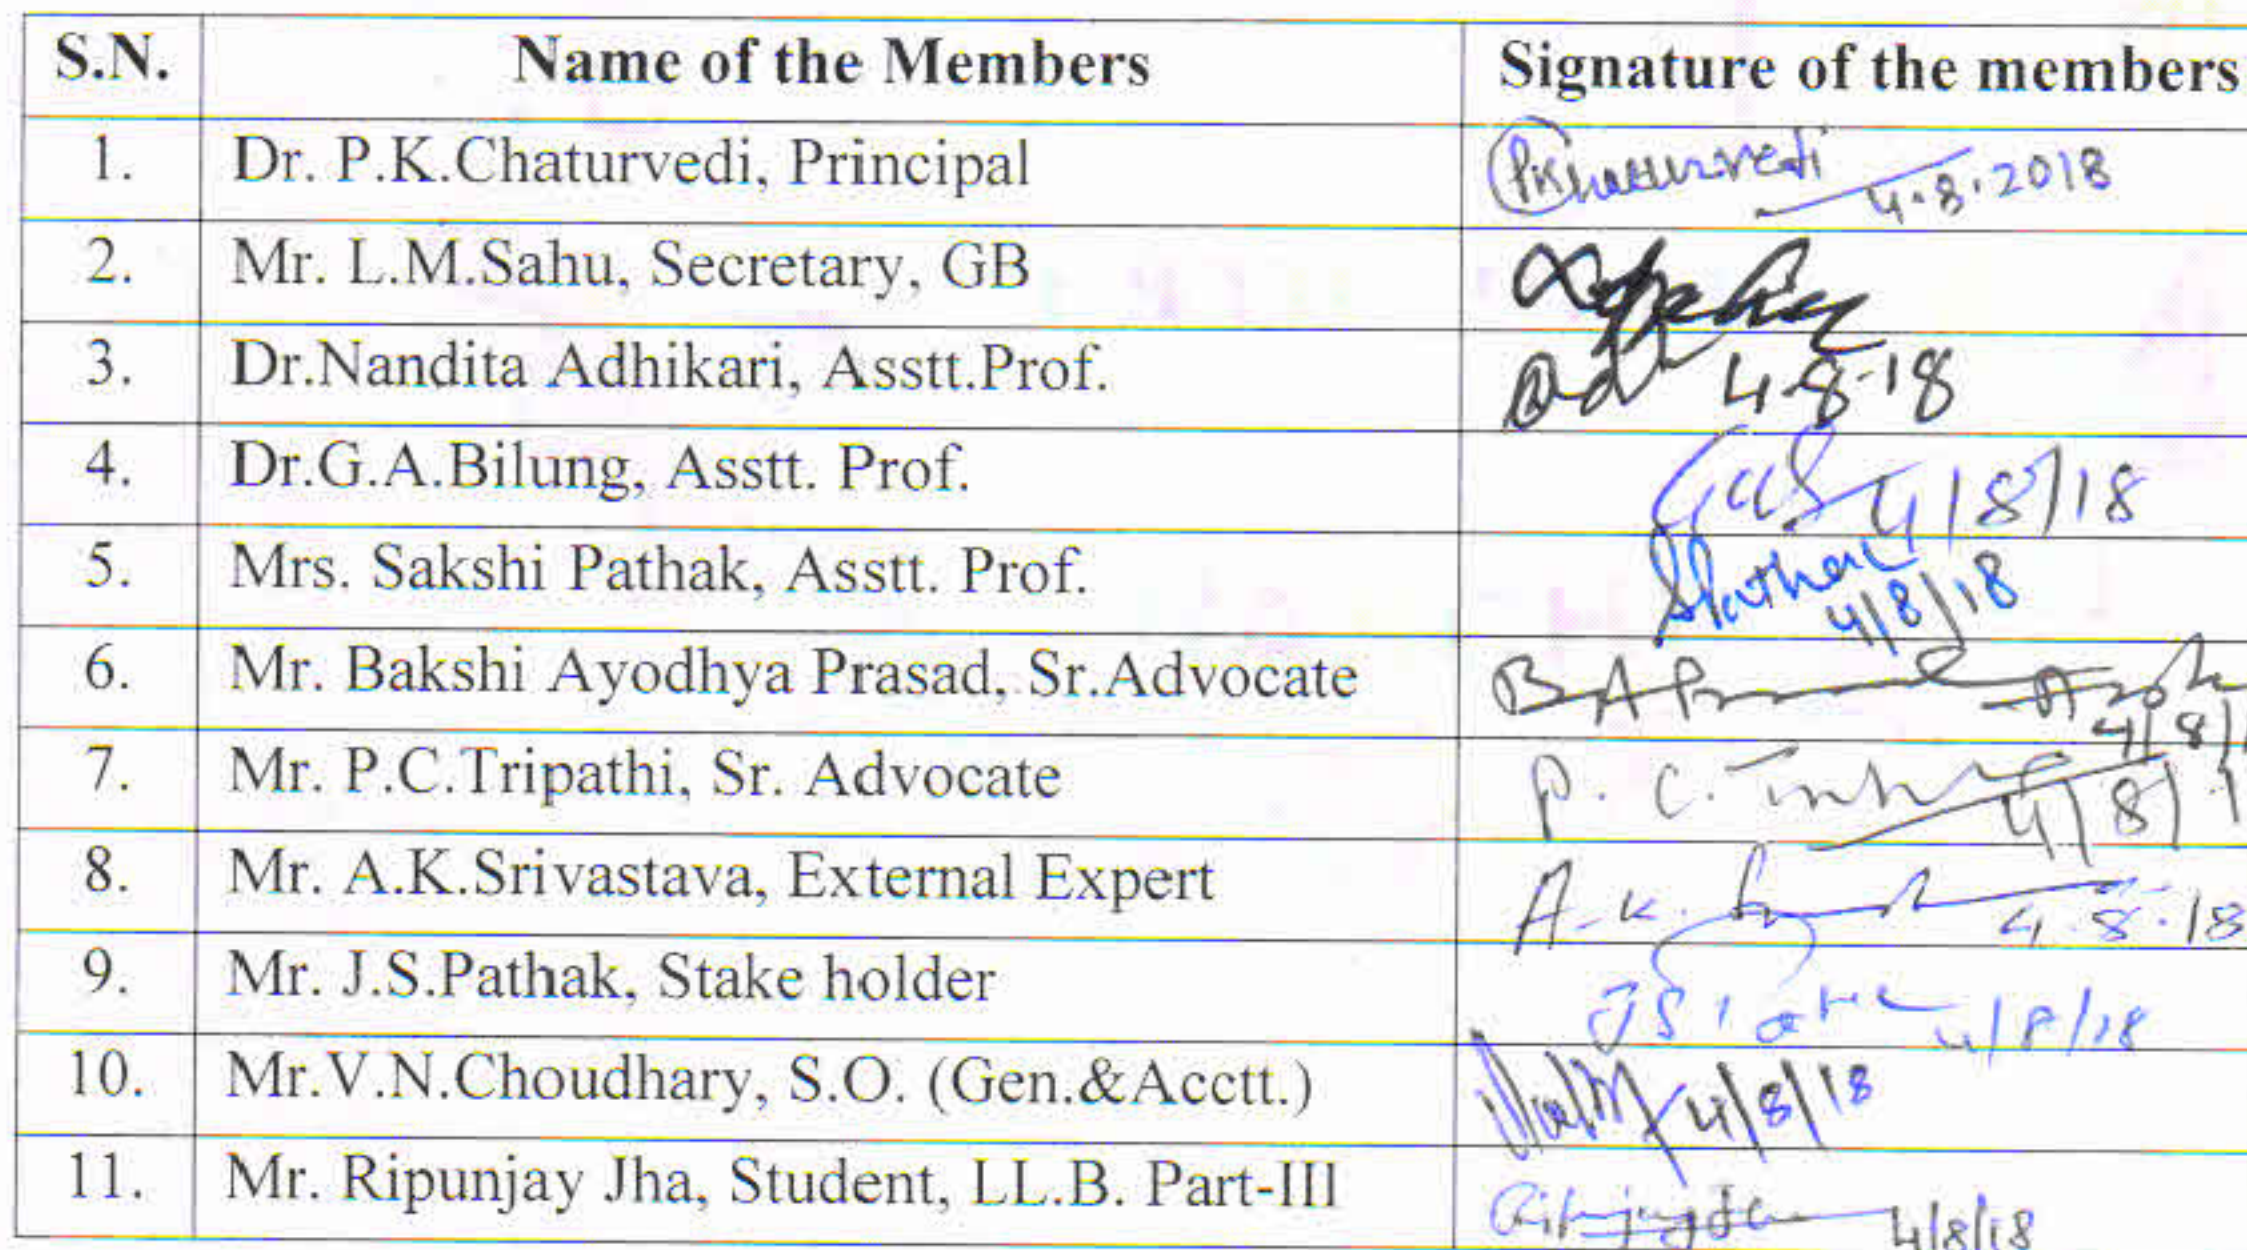 S.N. Name of the Members Signature of the members
1. Dr. P.K.Chaturvedi, Principal PKChaturvedi 4.8.2018
2. Mr. L.M.Sahu, Secretary, GB
3. Dr.Nandita Adhikari, Asstt.Prof. 4-8-18
4. Dr.G.A.Bilung, Asstt. Prof. 4/8/18
5. Mrs. Sakshi Pathak, Asstt. Prof. SPathak 4/8/18
6. Mr. Bakshi Ayodhya Prasad, Sr.Advocate B A Prasad 4/8/
7. Mr. P.C.Tripathi, Sr. Advocate P. C. 4/8/
8. Mr. A.K.Srivastava, External Expert A.K. 4.8.18
9. Mr. J.S.Pathak, Stake holder 4/8/18
10. Mr.V.N.Choudhary, S.O. (Gen.&Acctt.) 4/8/18
11. Mr. Ripunjay Jha, Student, LL.B. Part-III 4/8/18